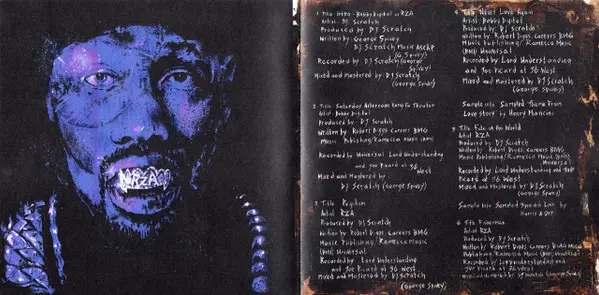 RZA
1 Title: Intro - Bobby Digital vs RZA
Artist: DJ Scratch
Produced by DJ Scratch
Written by George Spivey
DJ Scratch Music ASCAP
(G. Spivey)
Recorded by DJ Scratch (George
Spivey)
Mixed and Mastered by DJ Scratch
(George Spivey)
2 Title: Saturday Afternoon Kung Fu Theater
Artist: Bobby Digital
Produced by: DJ Scratch
Written by Robert Diggs Careers BMG
Music Publishing/Ramecca Music
Recorded by Universal Lord Understanding
and Joe Picard at 36
West
Mixed and Mastered by
DJ Scratch (George Spivey)
3 Title
Artist RZA
Produced by DJ Scratch
Written by Robert Diggs, Careers BMG
Music Publishing/Ramecca Music
(BMI) Universal
Recorded by Lord Understanding
and Joe Picard at 36 West
Mixed and Mastered by DJ Scratch
(George Spivey)
4 Title Never Love Again
Artist: Bobby Digital
Produced by: DJ Scratch
Written by Robert Diggs, Careers BMG
Music Publishing/Ramecca Music
(BMI) Universal
Recorded by Lord Understanding
and Joe Picard at 36 West
Mixed and Mastered by DJ Scratch
(George Spivey)
Sample info Sampled Theme From
Love Story by Henry Mancini
5 Title: Fate of the World
Artist RZA
Produced by DJ Scratch
Written by Robert Diggs, Careers BMG
Music Publishing/Ramecca Music (BMI)
Universal
Recorded by Lord Understanding and Joe
Picard at 36 West
Mixed and Mastered by DJ Scratch
(George Spivey)
Sample info Sampled
6 Title
Artist RZA
Produced by DJ Scratch
Written by Robert Diggs, Careers BMG Music
Publishing/Ramecca Music (BMI) Universal
Recorded by Lord Understanding and
Joe Picard at 36 West
Mixed and Mastered by DJ Scratch (George Spivey)